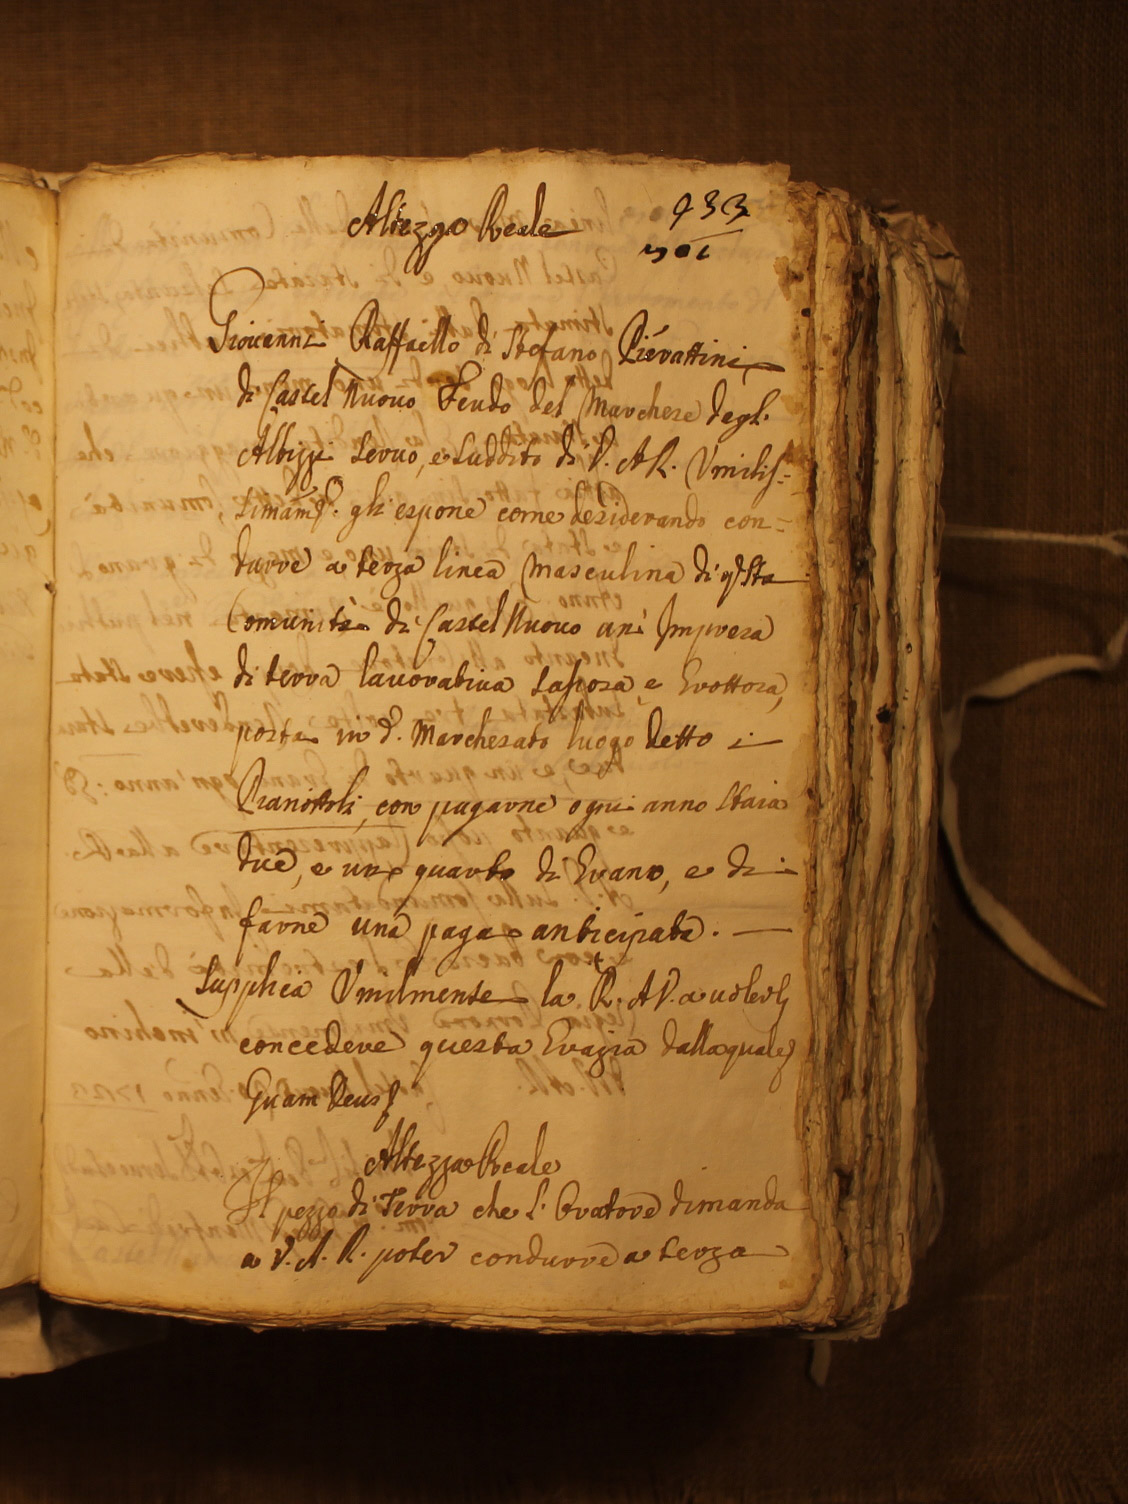 Altezza Reale
933
Giovanni Raffaello di Stefano Pierattini
di Castel Nuovo Feudo del Marchese degl.
Albizzi Servo, e Suddito di V. A R. Umilis=
simam.e gli espone come desiderando con=
durre a terza linea Masculina di q.sta
Comunità di Castel Nuovo un' Impresa
di terra lavorativa Sassosa, e Grottosa,
posta in d.o Marchesato luogo detto i
con pagarne ogni anno Staia
due, e un quarto di Grano, e di
farne una paga anticipata.
Supplica Umilmente la R. A V. a volerli
concedere questa Grazia dalla quale
Quam Deus
Altezza Reale
Il pezzo di Terra che l' Oratore dimanda
a V. A. R. poter condurre a terza